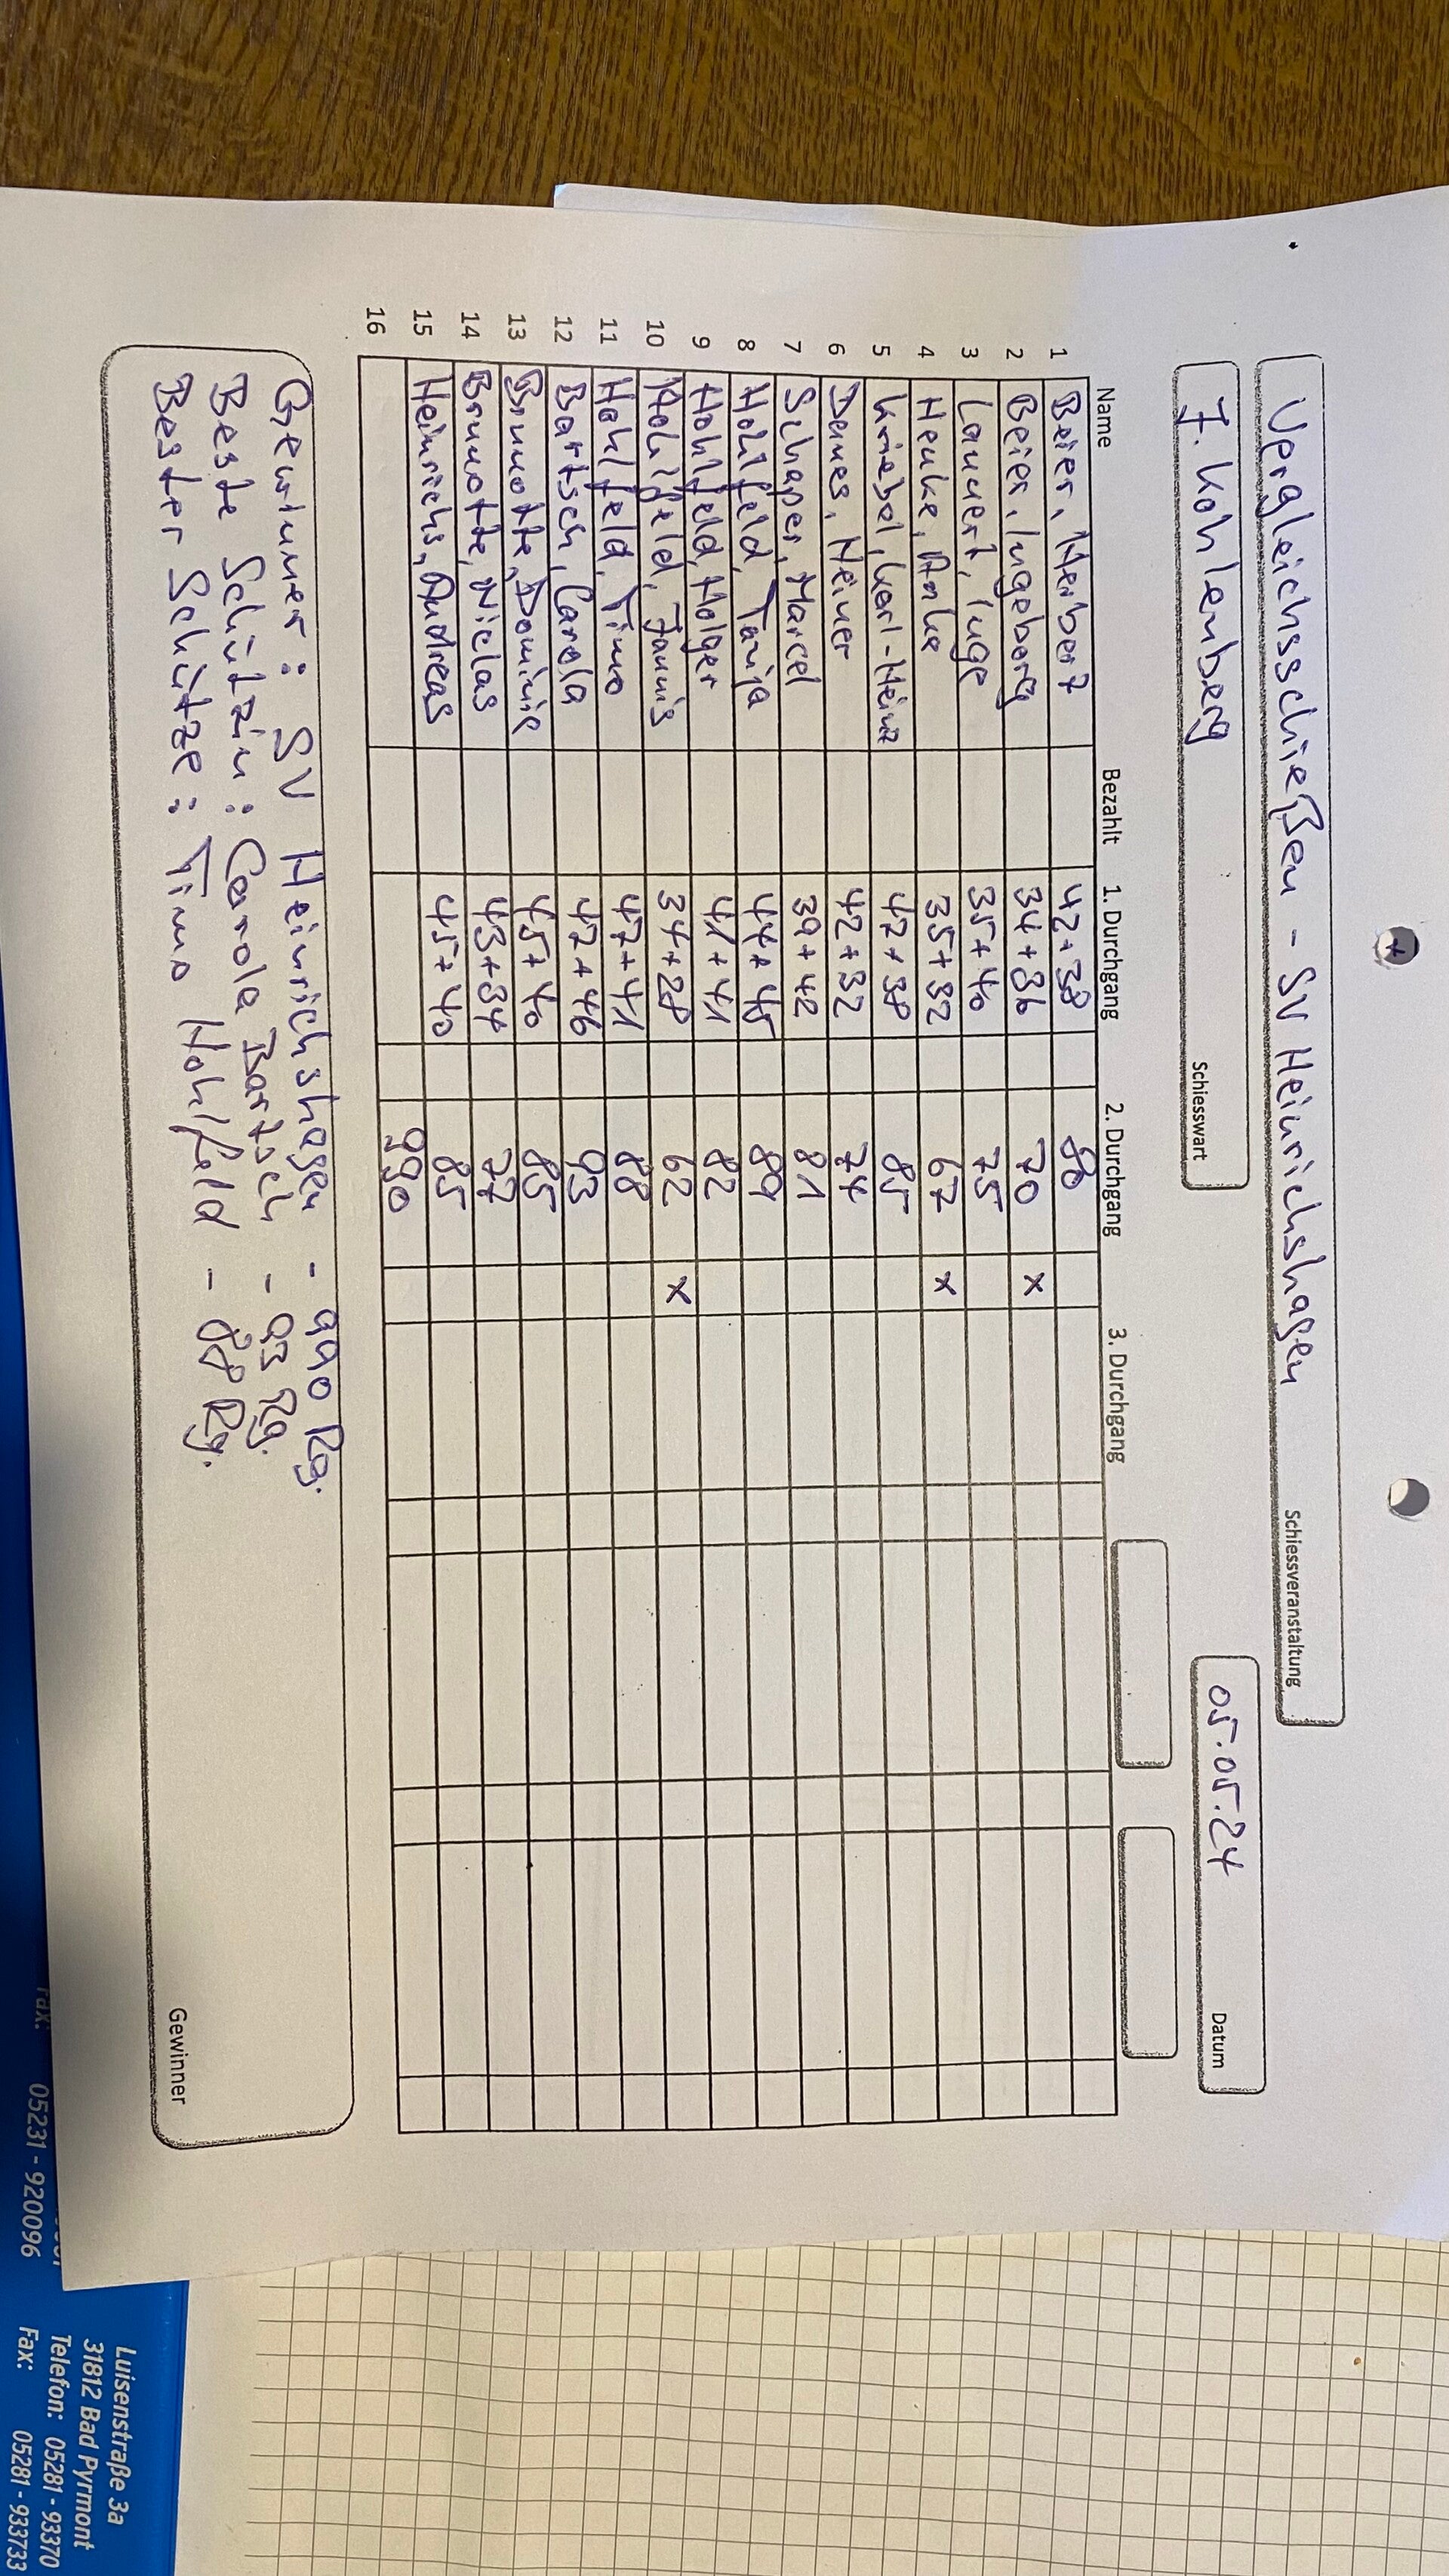 Vergleichsschießen - SV Heinrichshagen
Schiessveranstaltung
F. Kohlenberg
Schiesswart
05.05.24
Datum
Name Bezahlt 1. Durchgang 2. Durchgang 3. Durchgang
1 Beier, Herbert 42+38 80
2 Beier, Ingeborg 34+36 70 x
3 Lauert, Inge 35+40 75
4 Henke, Anke 35+32 67 x
5 Kriebel, Karl-Heinz 47+38 85
6 Danes, Heiner 42+32 74
7 Schaper, Marcel 39+42 81
8 Hohlfeld, Tanja 44+45 89
9 Hohlfeld, Holger 41+41 82
10 Hohlfeld, Jannis 34+28 62 x
11 Hohlfeld, Timo 47+41 88
12 Bartsch, Carola 47+46 93
13 Brunotte, Dominic 45+40 85
14 Brunotte, Niclas 43+34 77
15 Heinrichs, Andreas 45+40 85
16 990
Gewinner: SV Heinrichshagen - 990 Rg.
Beste Schützin: Carola Bartsch - 93 Rg.
Bester Schütze: Timo Hohlfeld - 88 Rg.
Gewinner
05231 - 920096
Luisenstraße 3a
31812 Bad Pyrmont
Telefon: 05281 - 93370
Fax: 05281 - 933733